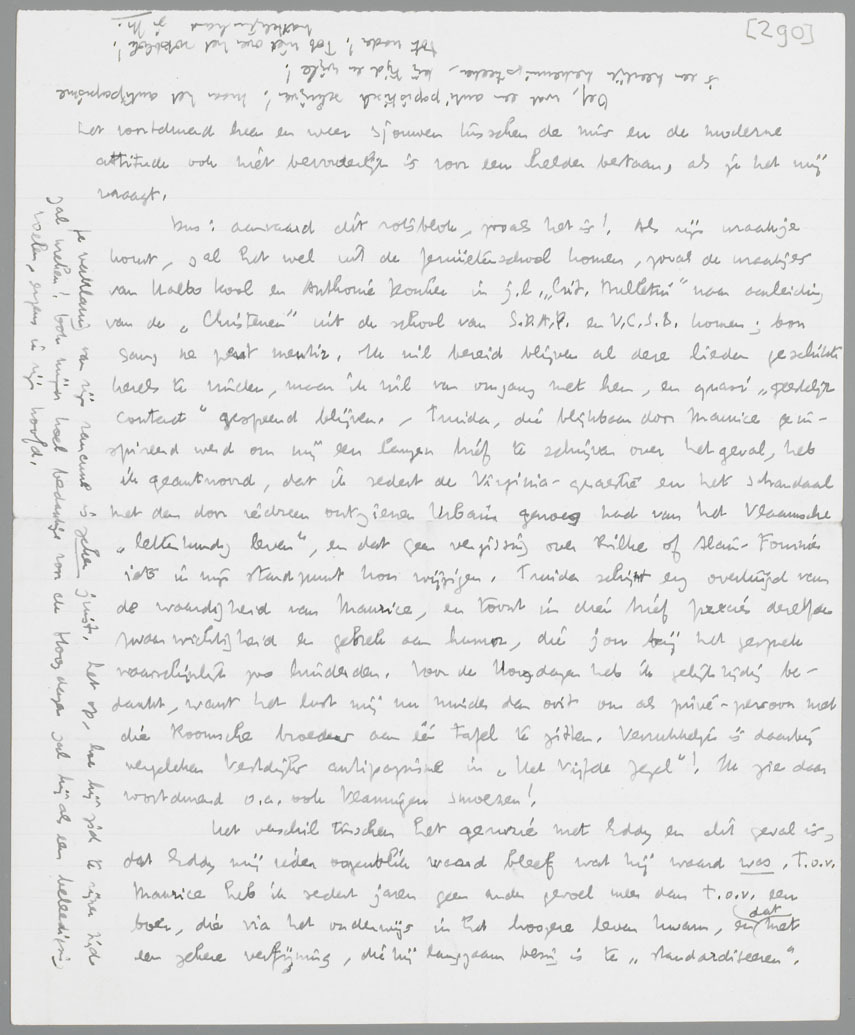 [290]
het voortdurend heen en weer sjouwen tusschen de mis en de moderne
attitude ook niét bevorderlijk is voor een helder bestaan, als je het mij
vraagt.
Dus: aanvaard dit rotsblok, zooals het is! Als zijn wraakje
komt, zal het wel uit de Jezuïetenschool komen, zooals de wraakjes
van Halbo Kool en Anthonie Donker in j.l. „Crit. Bulletin" naar aanleiding
van de „Christenen" uit de school van S.D.A.P. en V.C.S.B. komen; bon
sang ne peut mentir. Ik wil bereid blijven al deze lieden geschikte
kerels te vinden, maar ik wil van omgang met hen, en quasi „geestelijk
contact" gespeend blijven. - Truida, die blijkbaar door Maurice geïn-
spireerd werd om mij een langen brief te schrijven over het geval, heb
ik geantwoord, dat ik sedert de Virginia-quaestie en het schandaal
met den door iedereen ontzienen Urbain genoeg had van het Vlaamsche
„letterkundig leven", en dat geen vergissing over Rilke of Alain-Fournier
iets in mijn standpunt kon wijzigen. Truida schijnt erg overtuigd van
de waardigheid van Maurice, en toont in dien brief precies dezelfde
zwaarwichtigheid en gebrek aan humor, die jou bij het gesprek
waarschijnlijk zoo hinderden. Voor de Hoogdagen heb ik gelijktijdig be-
dankt, want het lust mij nu minder dan ooit om als privé-persoon met
die Roomsche broeders aan één tafel te zitten. Verrukkelijk is daarbij
vergeleken Vestdijks antipapisme in „Het Vijfde Zegel"! Ik zie daar
voortdurend o.a. ook Vlamingen smoezen!
Het verschil tusschen het geruzie met Eddy en dit geval is,
dat Eddy mij ieder oogenblik waard bleef wat hij waard was. T.o.v.
Maurice heb ik sedert jaren geen ander gevoel meer dan t.o.v. een
boer, die via het onderwijs in het hoogere leven kwam, en dat met
een zekere verfijning, die hij langzaam bezig is te „standardiseeren".
Je verklaring van zijn rancune is zeker juist. Let op, hoe hij zich te zijner tijd
zal wreken! Ook mijn bedankje voor de Hoogdagen zal hij als een beleediging
voelen, ergens in zijn hoofd.
Oef, wat een anti-papistisch schrijven! Maar het antipapisme
is een heerlijk , bij tijd en wijle!
Tot nader! Tob niet over het rotsblok!
hartelijke hand
je M.